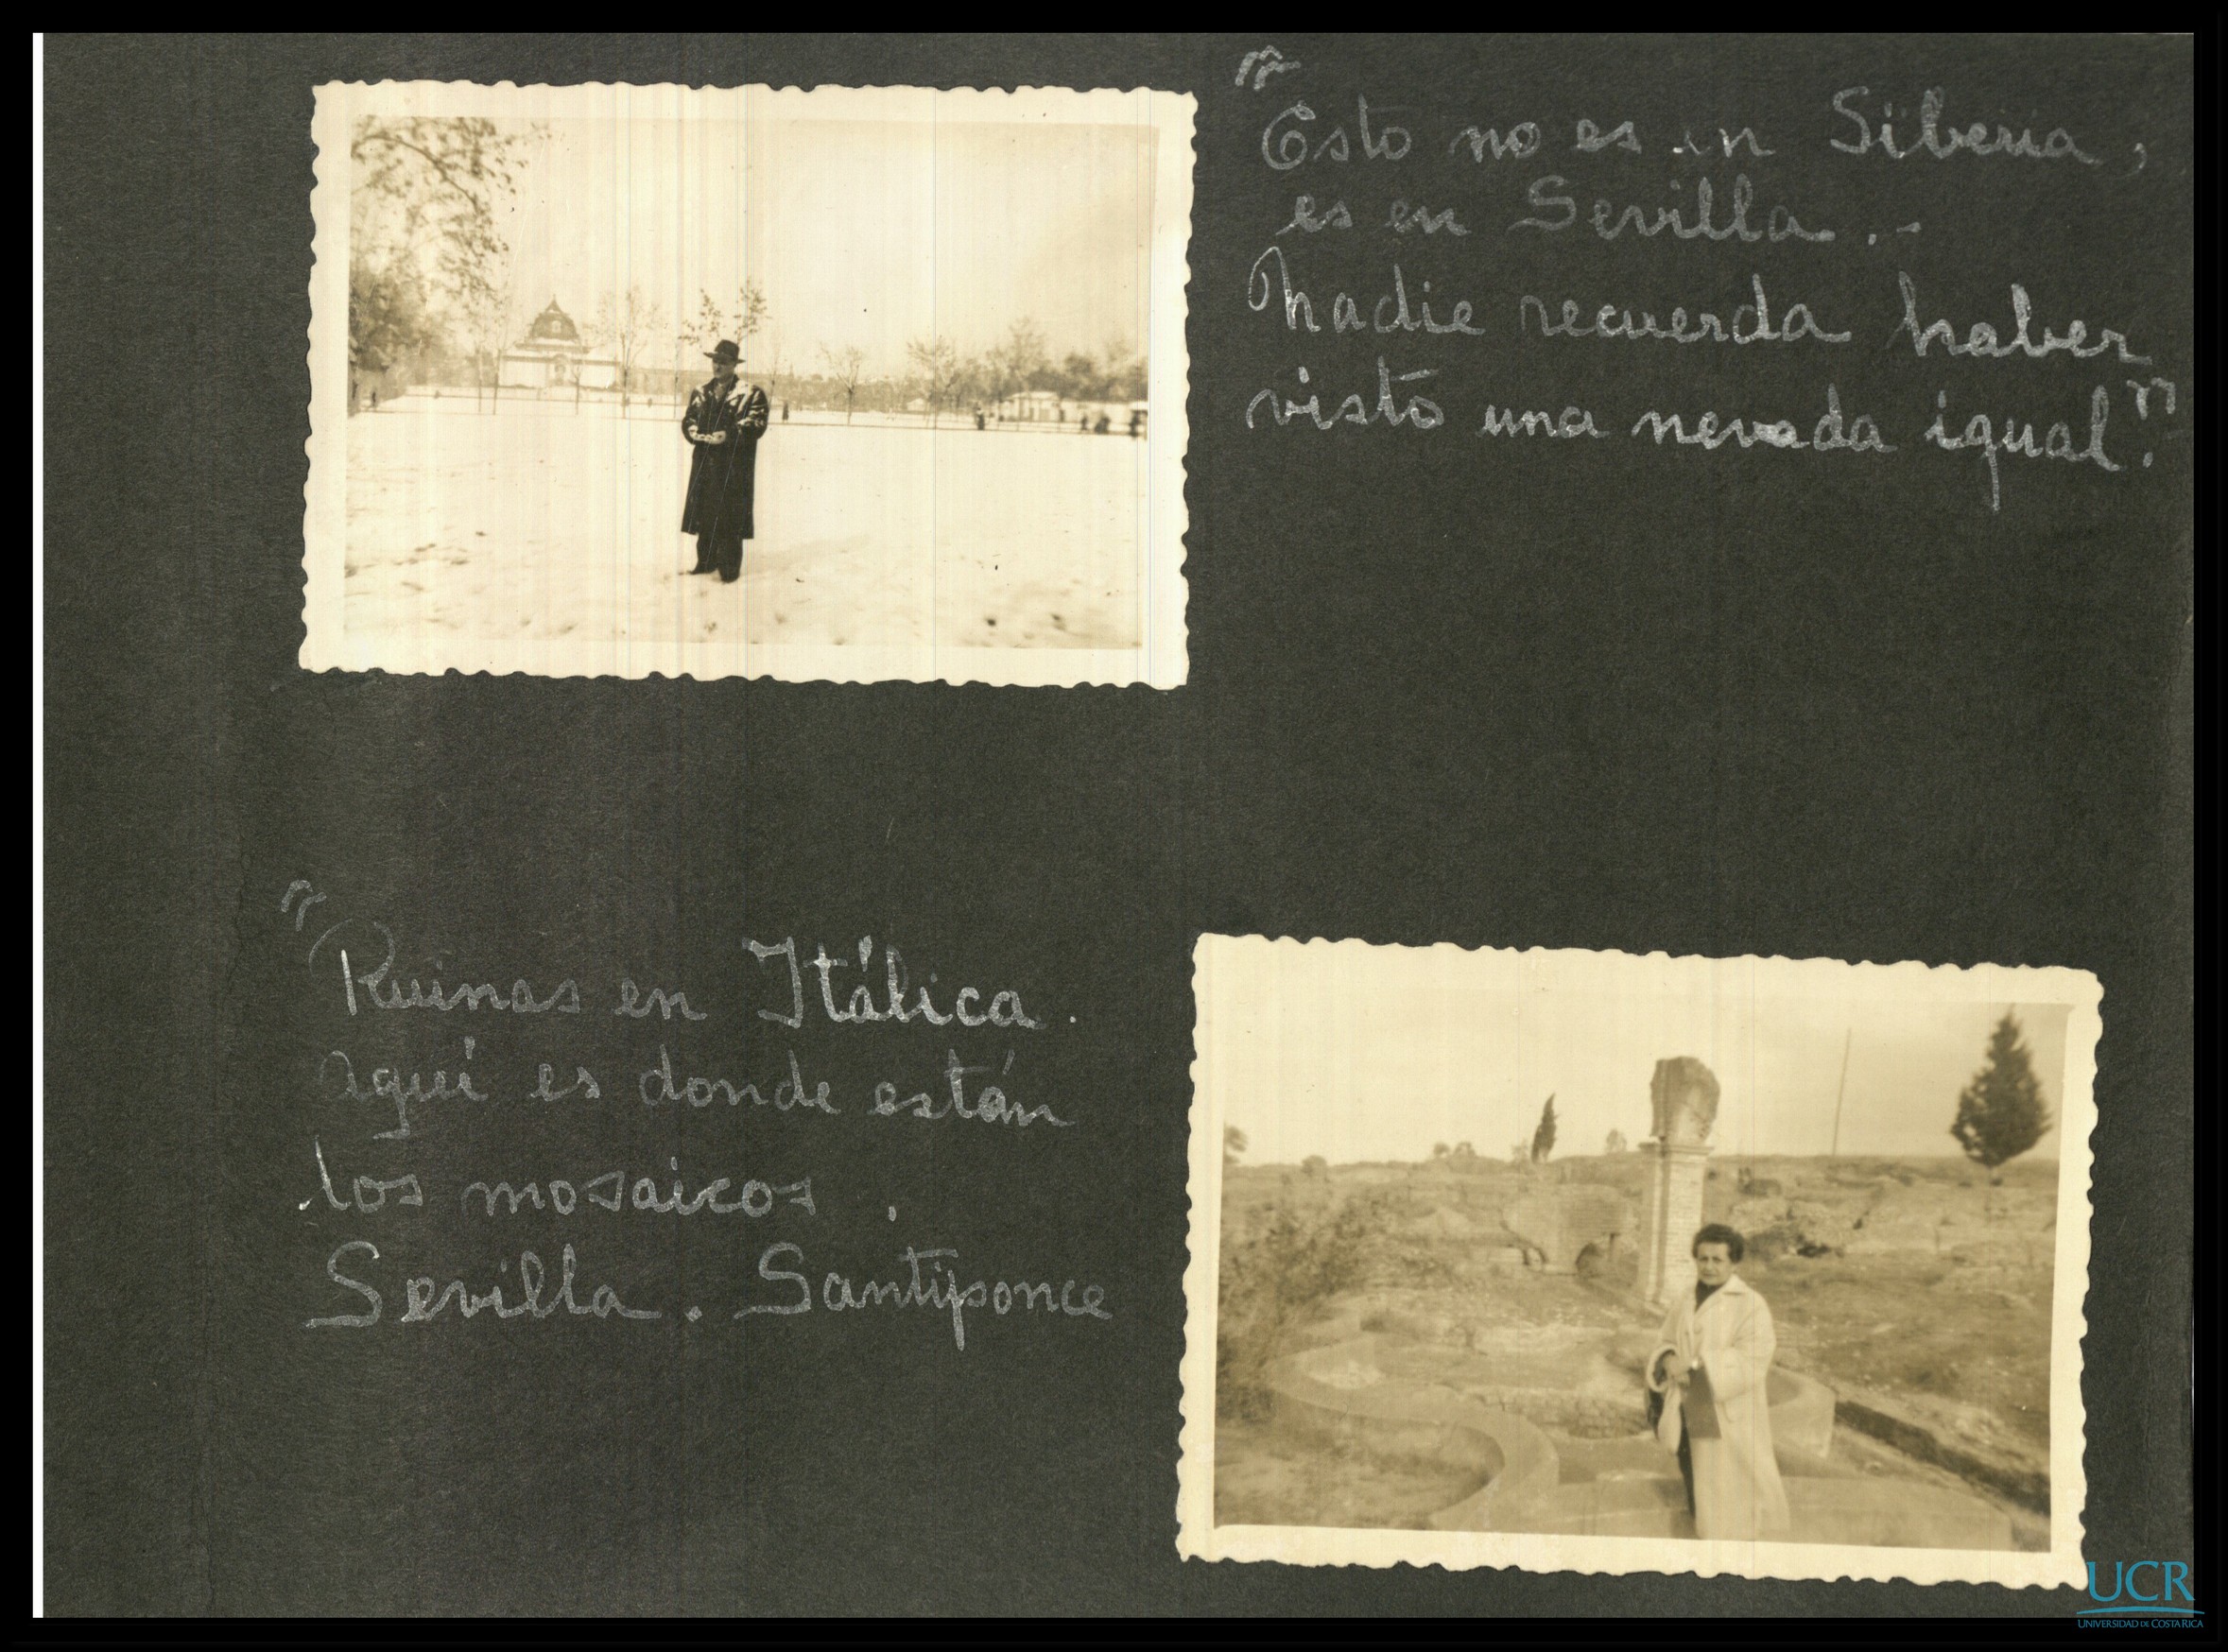 "Esto no es en Siberia,
es en Sevilla.-
Nadie recuerda haber
visto una nevada igual."
"Ruinas en Itálica.
Aquí es donde están
los mosaicos.
Sevilla. Santiponce
UCR
UNIVERSIDAD DE COSTA RICA